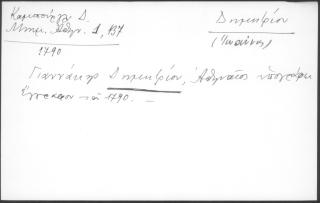 Καμπούρογλ. Δ.
Μνημ. Αθην. 1, 137
1790
Δημητρίου
(Ιωάννης)
Γιαννάκης Δημητρίου, Αθηναῖος ὑπογράφει
ἔγγραφον τοῦ 1790. —